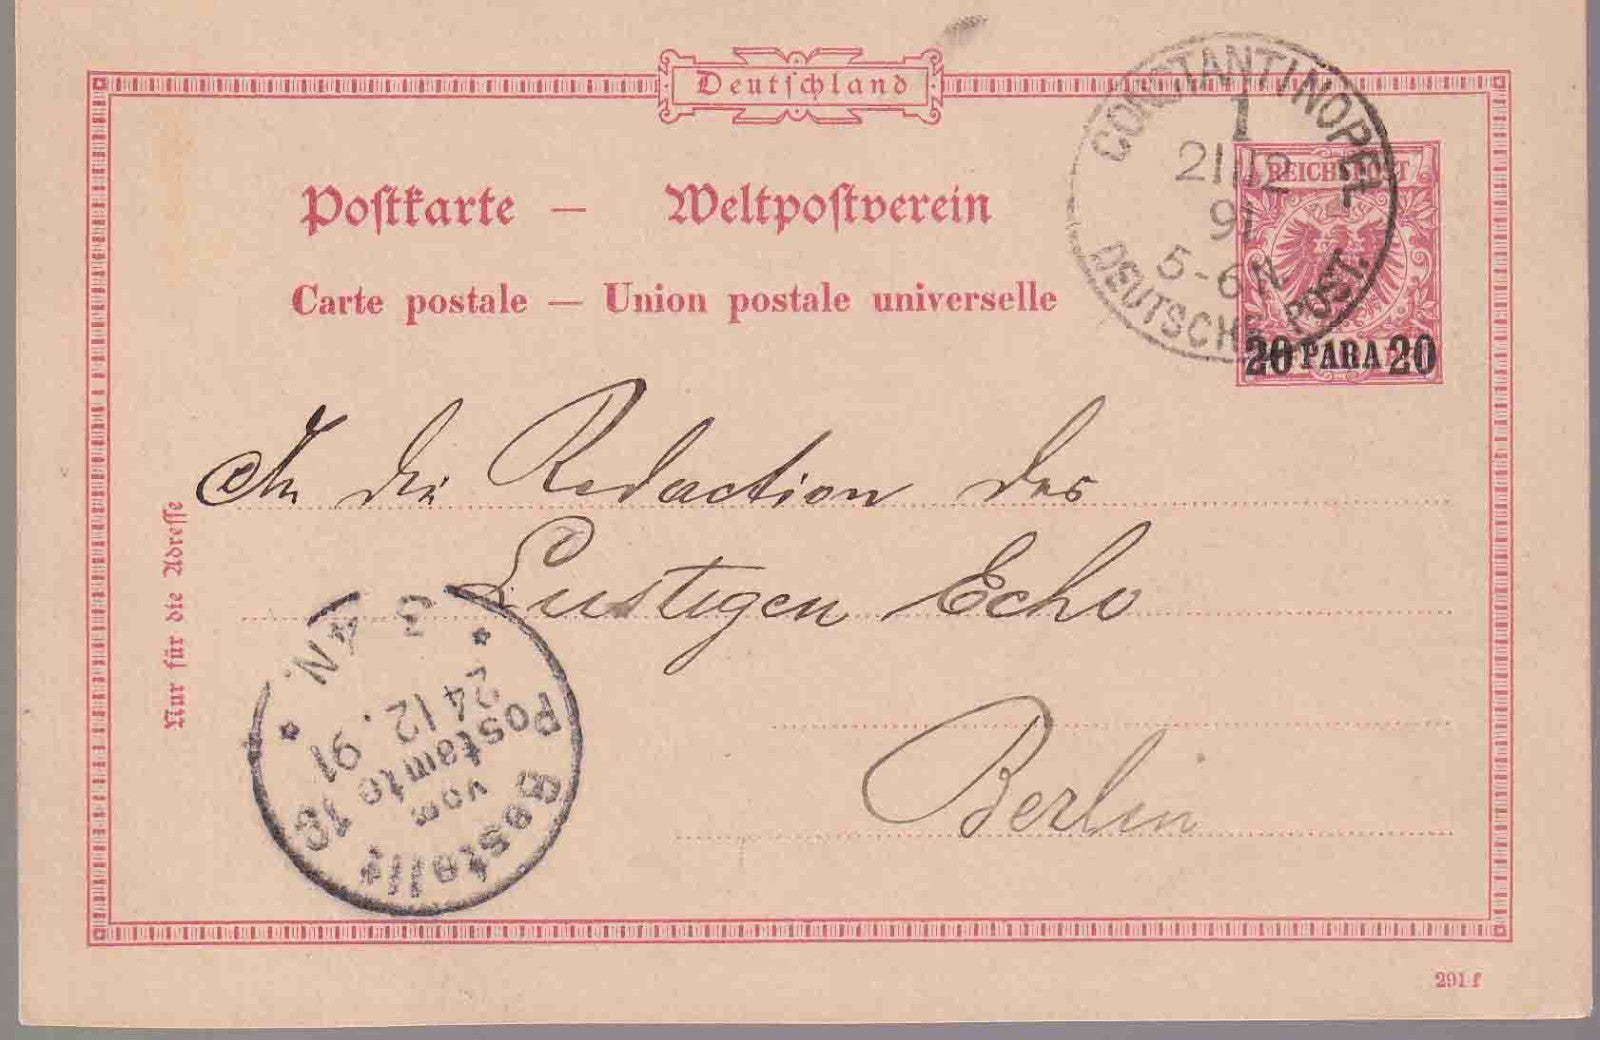 Deutschland
Postkarte — Weltpostverein
Carte postale — Union postale universelle
CONSTANTINOPEL
1
21/12
91
5-6N
DEUTSCHE POST.
REICHSPOST
20 PARA 20
An die Redaction des
Lustigen Echo
Berlin
Nur für die Adresse
Bestellt
vom
Postamte 16
24 12. 91
3 ¼ N.
291 f